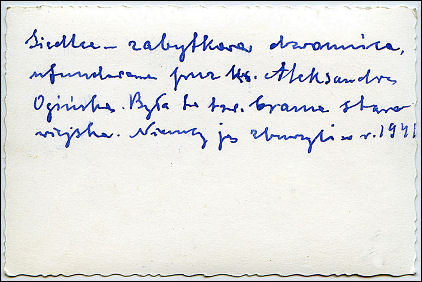 Siedlce – zabytkowa dzwonnica,
ufundowana przez ks. Aleksandrę
Ogińską. Była to tzw. brama staro
wiejska. Niemcy ją zburzyli w r. 1941